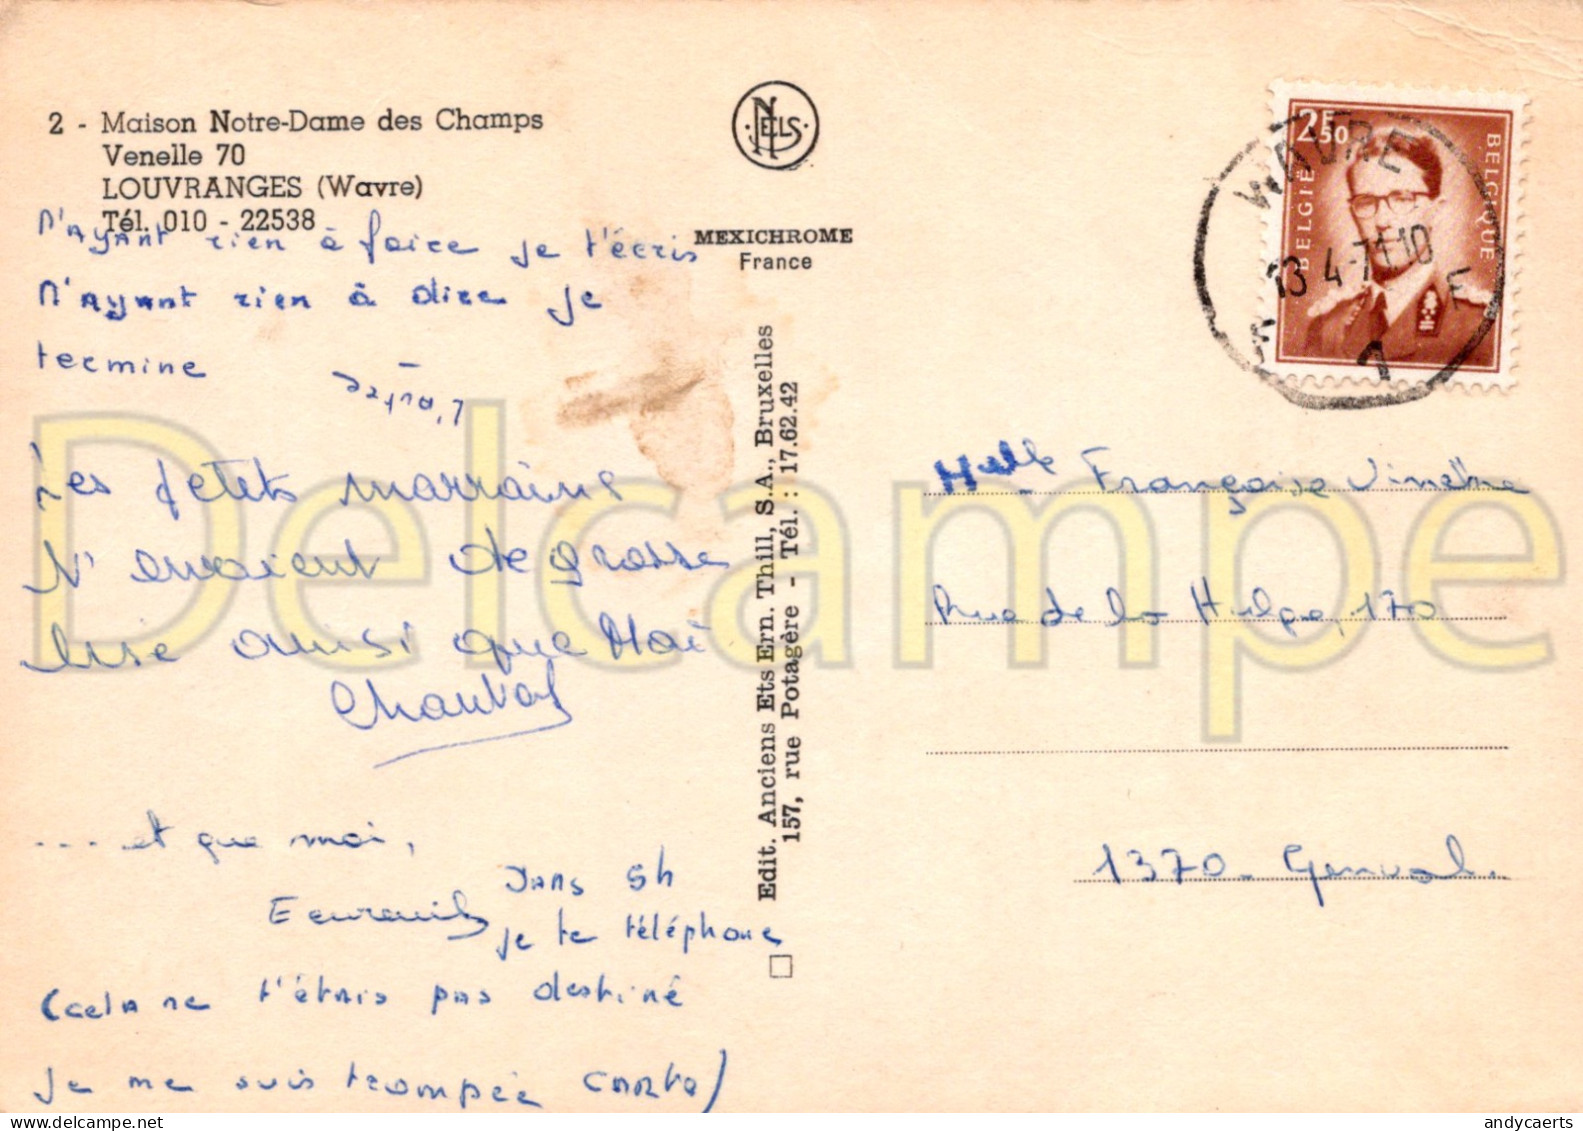 2 - Maison Notre-Dame des Champs
Venelle 70
LOUVRANGES (Wavre)
Tél. 010 - 22538
N'ayant rien à faire je t'écris
N'ayant rien à dire je
termine
Les petits marraine
N'envoient de grosse
bise ainsi que Moi
... et que moi,
Ecureuil
Dans 5h
je te téléphone
(cela ne t'étais pas destiné
je me suis trompée carte)
NELS
MEXICHROME
France
Edit. Anciens Ets Ern. Thill, S.A., Bruxelles
157, rue Potagère - Tél. : 17.62.42
2F50
BELGIË
BELGIQUE
WAVRE
13-4-71 10
1
Melle Françoise
Rue de la Hulpe, 170
1370 - Genval.
Delcampe
andycaerts